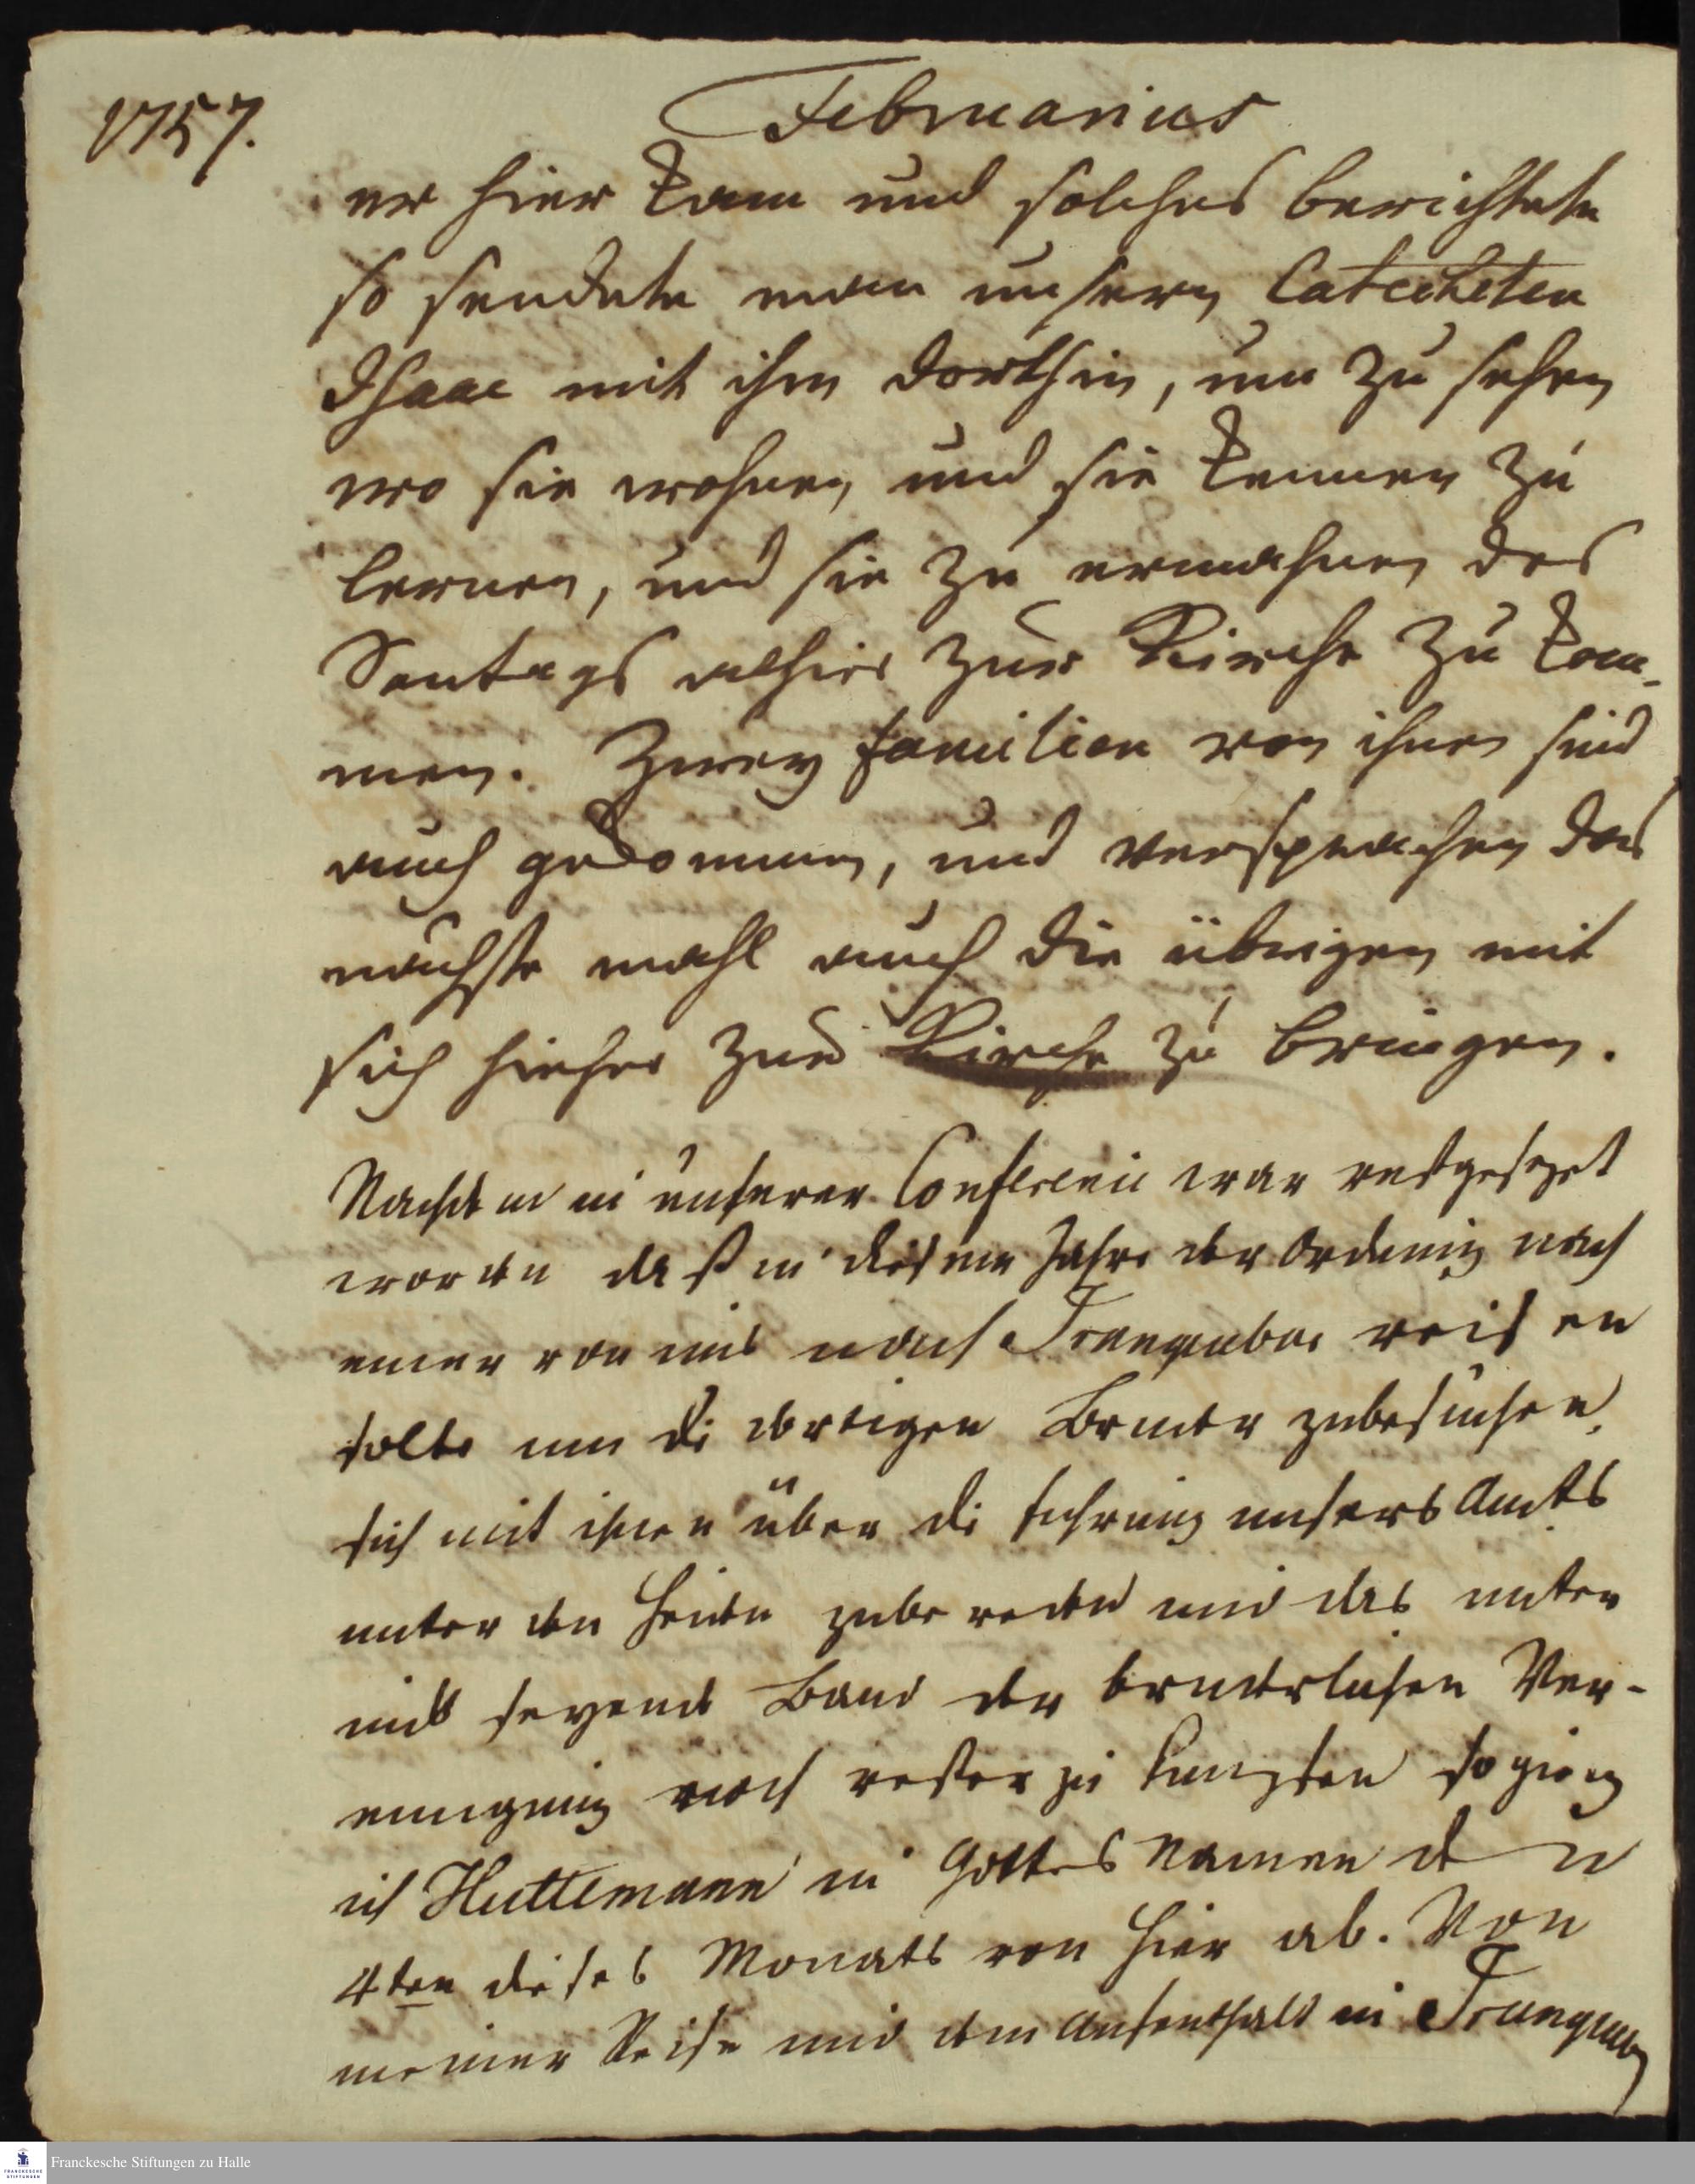 1757.
Februarius
er hier kam und solches berichtete
so sendete man unsern Catecheten
Isaac mit ihm dorthin, um zu sehen
wo sie wohnen, und sie kennen zu
lernen, und sie zu ermahnen des
Sontags alhier zur Kirche zu kom-
men. Zwey familien von ihnen sind
auch gekommen, und versprachen das
nächste mahl auch die übrigen mit
sich hieher zur Kirche zu bringen.
Nachdem in unserer Conferenz war vestgesezet
worden daß in diesem Jahre der Ordnung nach
einer von uns nach Tranquebar reisen
solte um die dortigen Brüder zubesuchen,
sich mit ihnen über die führung unsers Amts
unter den Heiden zubereden und das unter
uns seyende Band der brüderlichen Ver-
einigung noch vester zu knüpfen so ging
ich Huttemann in Gottes Namen den
4ten dieses Monats von hier ab. Von
meiner Reise und dem Aufenthalt in Tranqueb
Franckesche Stiftungen zu Halle
FRANCKESCHE
STIFTUNGEN